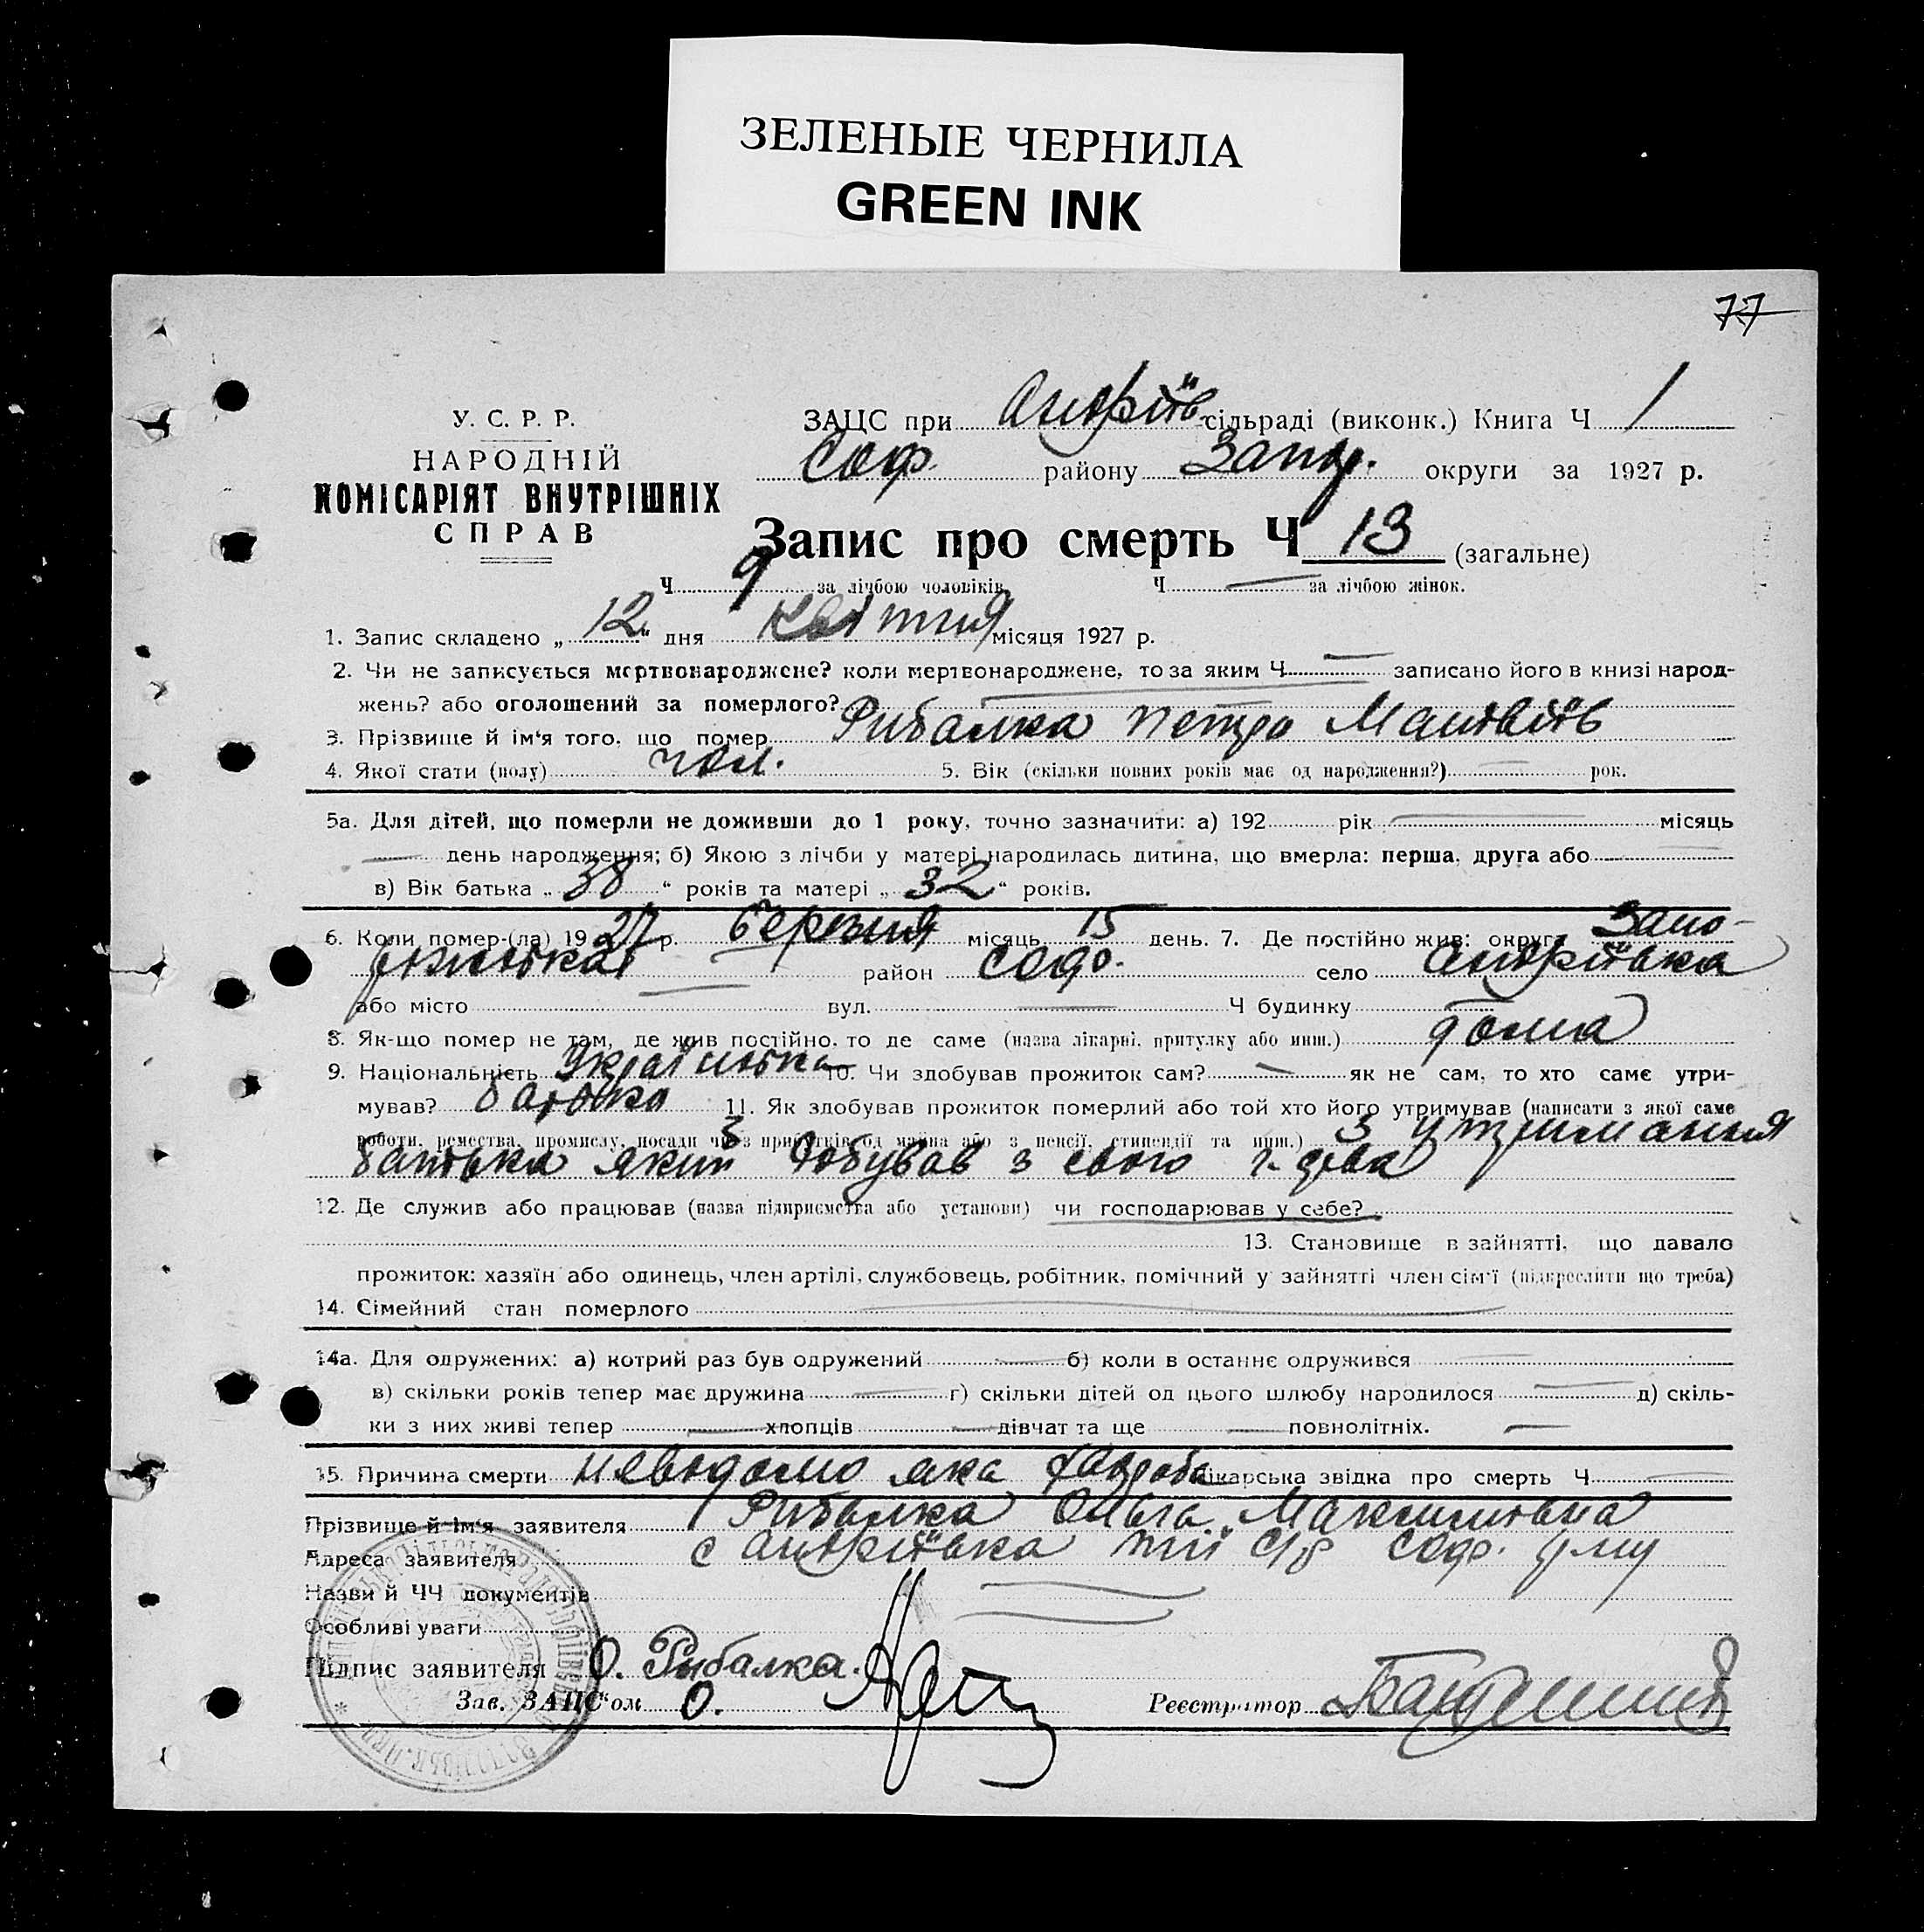 ЗЕЛЕНЫЕ ЧЕРНИЛА
GREEN INK
77
У. С. Р. Р.
НАРОДНІЙ
КОМІСАРІЯТ ВНУТРІШНІХ
СПРАВ
ЗАЦС при Андріїв сільраді (виконк.) Книга Ч 1
Соф. району Запор. округи за 1927 р.
Запис про смерть Ч 13 (загальне)
Ч 9 за лічбою чоловіків. Ч — за лічбою жінок.
1. Запис складено „ 12 “ дня квітня місяця 1927 р.
2. Чи не записується мертвонароджене? коли мертвонароджене, то за яким Ч — записано його в книзі народ-
жень? або оголошений за померлого? —
3. Прізвище й ім'я того, що помер Рибалка Петро Матвіїв
4. Якої стати (полу) чол. 5. Вік (скільки повних років має од народження?) — рок.
5а. Для дітей, що померли не доживши до 1 року, точно зазначити: а) 192 рік — місяць
— день народження; б) Якою з лічби у матері народилась дитина, що вмерла: перша, друга або —
в) Вік батька „ 38 “ років та матері „ 32 “ років.
6. Коли помер-(ла) 1927 р. березня місяць 15 день. 7. Де постійно жив: округа Запо-
ріжська район Соф. село Андріївка
або місто — вул. — Ч будинку —
8. Як-що помер не там, де жив постійно, то де саме (назва лікарні, притулку або инш.) дома
9. Національність Українська 10. Чи здобував прожиток сам? — як не сам, то хто саме утри-
мував? батько 11. Як здобував прожиток померлий або той хто його утримував (написати з якої саме
роботи, ремества, промислу, посади чи з прибутків од майна або з пенсії, стипендії та инш.) З утримання
батька який добував з свого г-дства
12. Де служив або працював (назва підприємства або установи) чи господарював у себе?
13. Становище в зайнятті, що давало
прожиток: хазяїн або одинець, член артілі, службовець, робітник, помічний у зайнятті член сім'ї (підкреслити що треба)
14. Сімейний стан померлого —
14а. Для одружених: а) котрий раз був одружений — б) коли в останнє одружився —
в) скільки років тепер має дружина — г) скільки дітей од цього шлюбу народилося — д) скіль-
ки з них живі тепер — хлопців — дівчат та ще — повнолітніх. —
15. Причина смерти невідомо яка хвороба Лікарська звідка про смерть Ч —
Прізвище й ім'я заявителя Рибалка Ольга Максимовна
Адреса заявителя с Андріївка тії с/р Соф. р-ну
Назви й ЧЧ документів —
Особливі уваги —
Підпис заявителя О. Рыбалка.
Зав. ЗАЦС'ом О.
Реєстратор